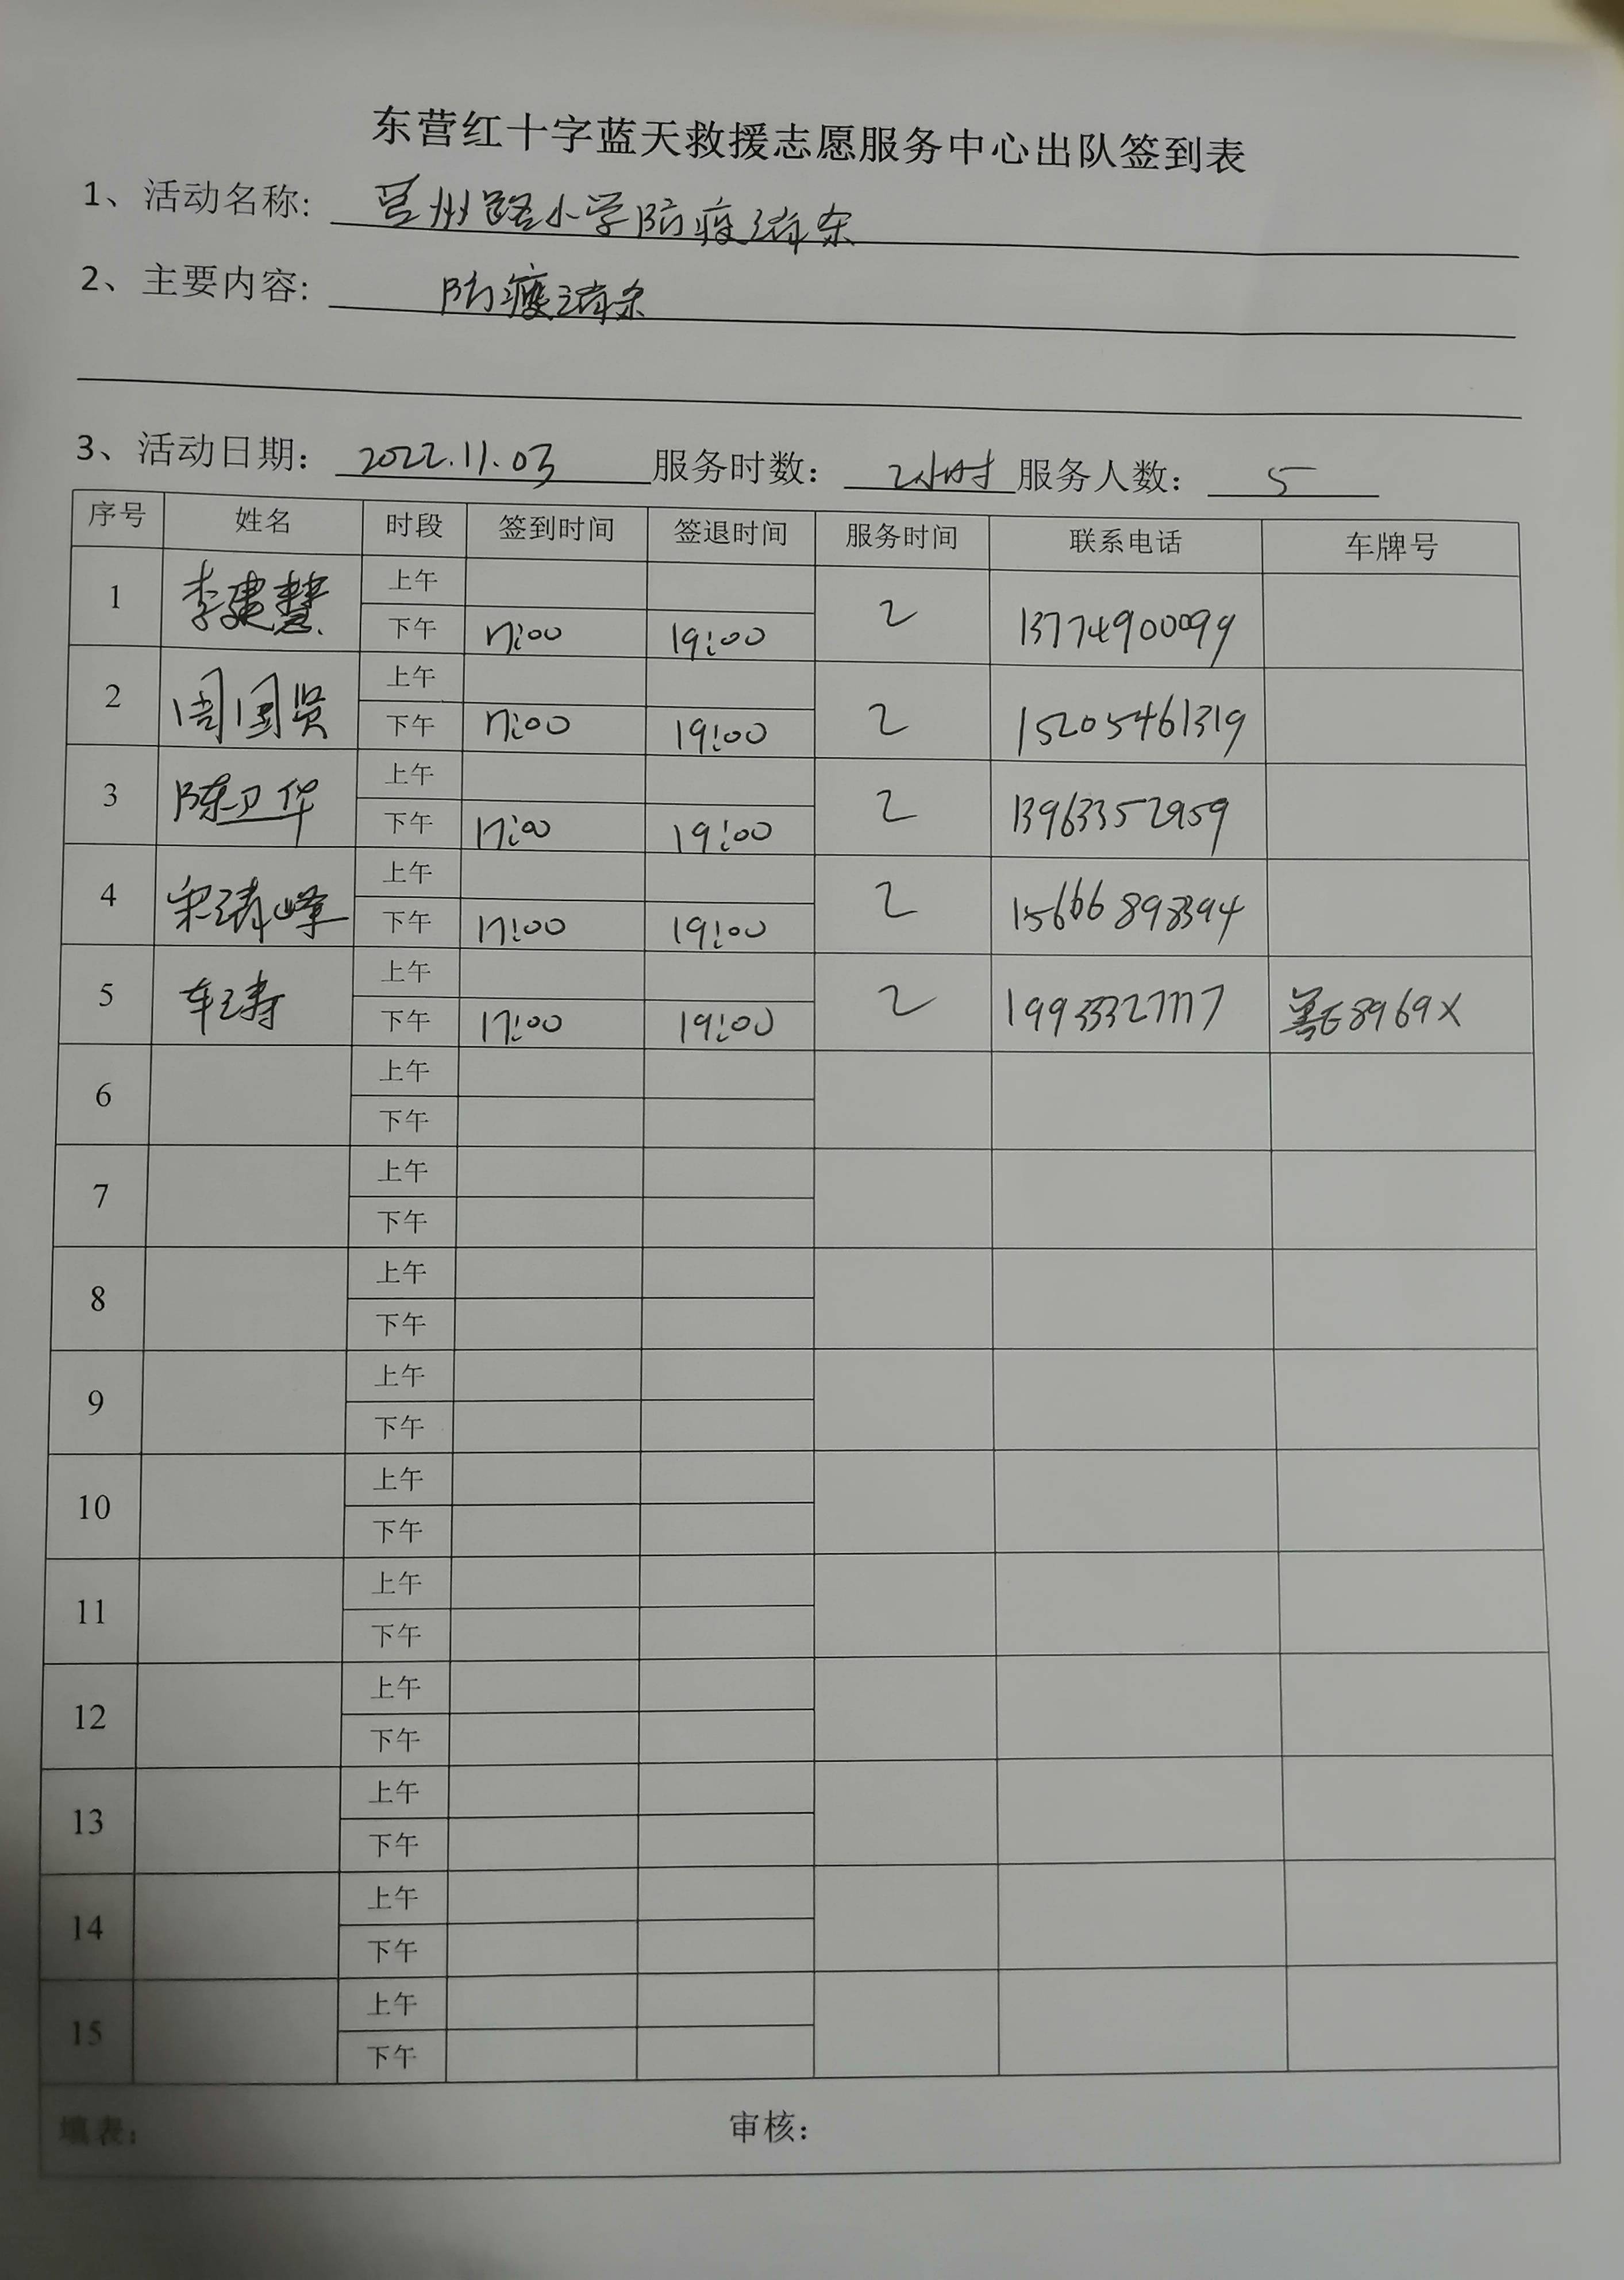 东营红十字蓝天救援志愿服务中心出队签到表
1、活动名称: 莒州路小学防疫消杀
2、主要内容: 防疫消杀
3、活动日期: 2022.11.03 服务时数: 2小时 服务人数: 5
序号 姓名 时段 签到时间 签退时间 服务时间 联系电话 车牌号
1 李建慧 上午 2 13774900099
下午 17:00 19:00
2 周国贤 上午 2 15205461319
下午 17:00 19:00
3 陈卫华 上午 2 13963352959
下午 17:00 19:00
4 宋清峰 上午 2 15666898394
下午 17:00 19:00
5 车涛 上午 2 19933327777 E8969X
下午 17:00 19:00
6 上午
下午
7 上午
下午
8 上午
下午
9 上午
下午
10 上午
下午
11 上午
下午
12 上午
下午
13 上午
下午
14 上午
下午
15 上午
下午
填表: 审核: